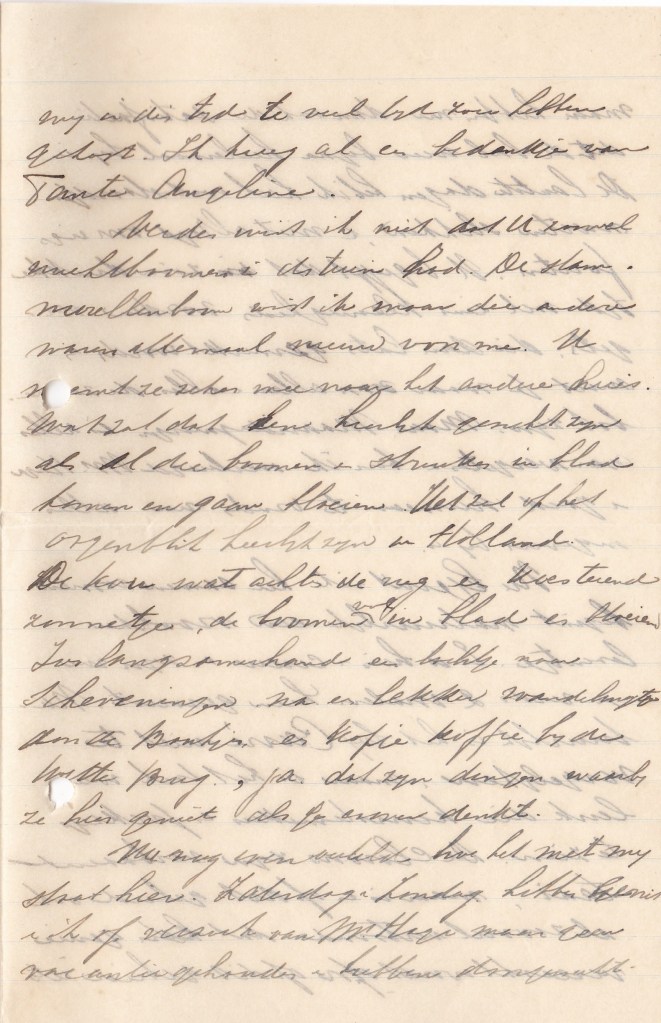 my in die tyd te veel tyd zou hebben
gekost. Ik kreeg al en bedankje van
Tante Angeline.
Verder wist ik niet dat U zoveel
vruchtboomen in de tuin had. De stam-
morellenboom wist ik maar die andere
waren allemaal nieuw voor me. U
neemt ze zeker mee naar het andere huis.
Wat zal dat een heerlyk gezicht zyn
als al die boomen en struiken in blad
komen en gaan bloeien. Het zal op het
oogenblik heerlyk zyn in Holland.
De kou wat achter de rug en koesterend
zonnetje, de boomen vol in blad en bloeien
Zoo langzamerhand en tochtje naar
Scheveningen na en lekker wandelingetje
aan de Boschjes, en kopje koffie by de
Witte Brug., ja. dat zyn dingen waarby
ze hier geniet als je erover denkt.
Nu nog even verteld hoe het met my
staat hier. Zaterdag en Zondag hebben
ik op verzoek van Mr Hage maar geen
vacantie gehouden en hebben